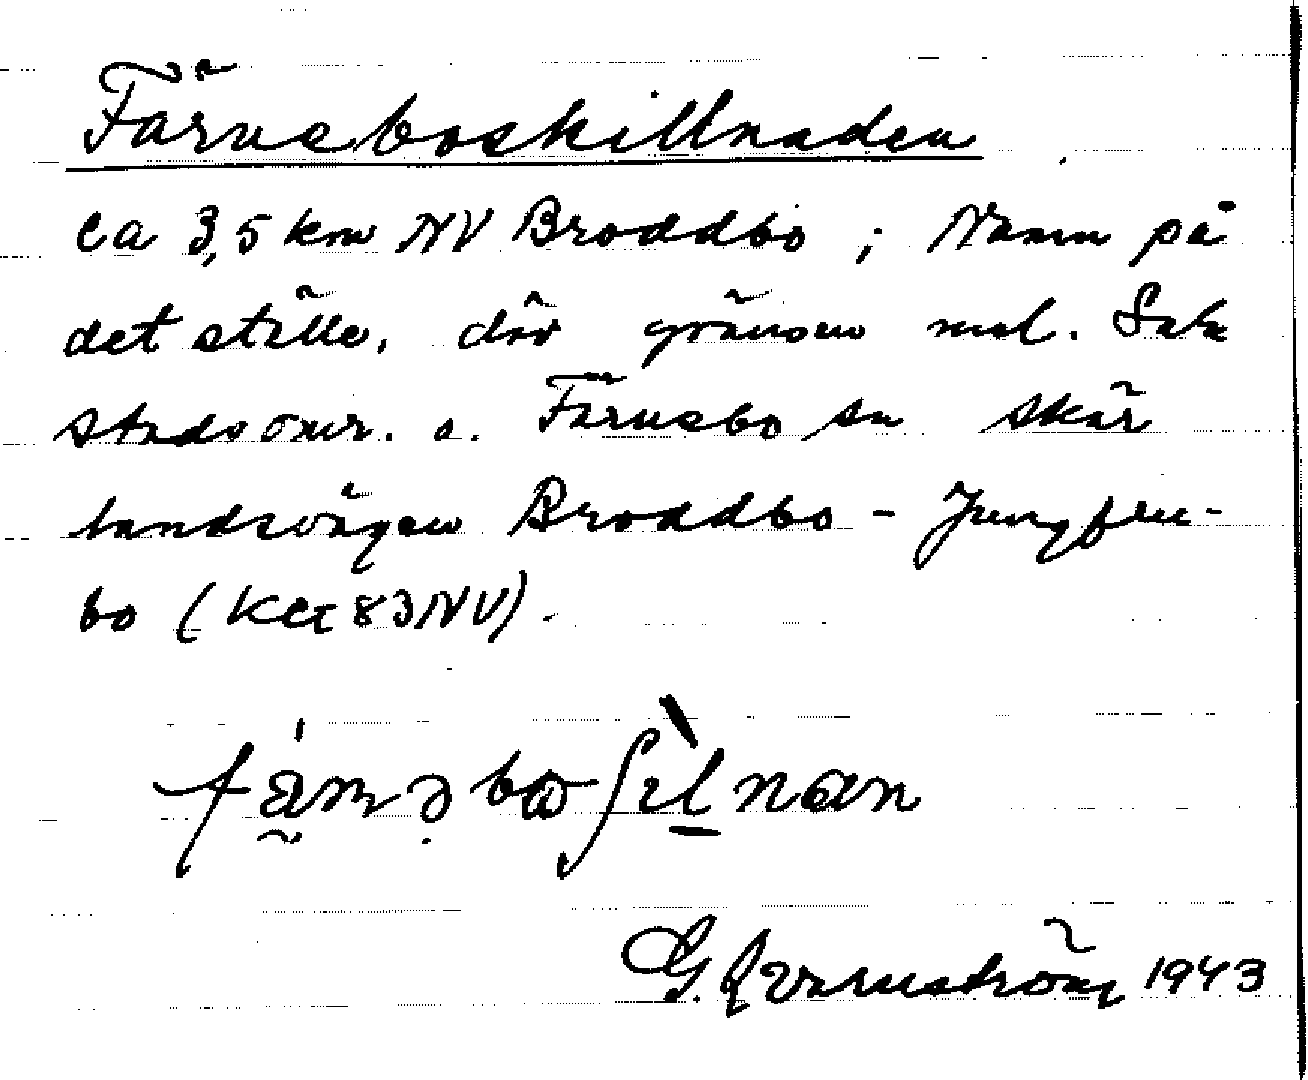 Färneboskillnaden
ca 3,5 km NV Broddbo ; Namn på
det ställe, där gränsen mel. Sala
stadsomr. o. Färnebo sn skär
landsvägen Broddbo - Jungfru-
bo (Kct 83 NV).
G. Kvarnström 1943